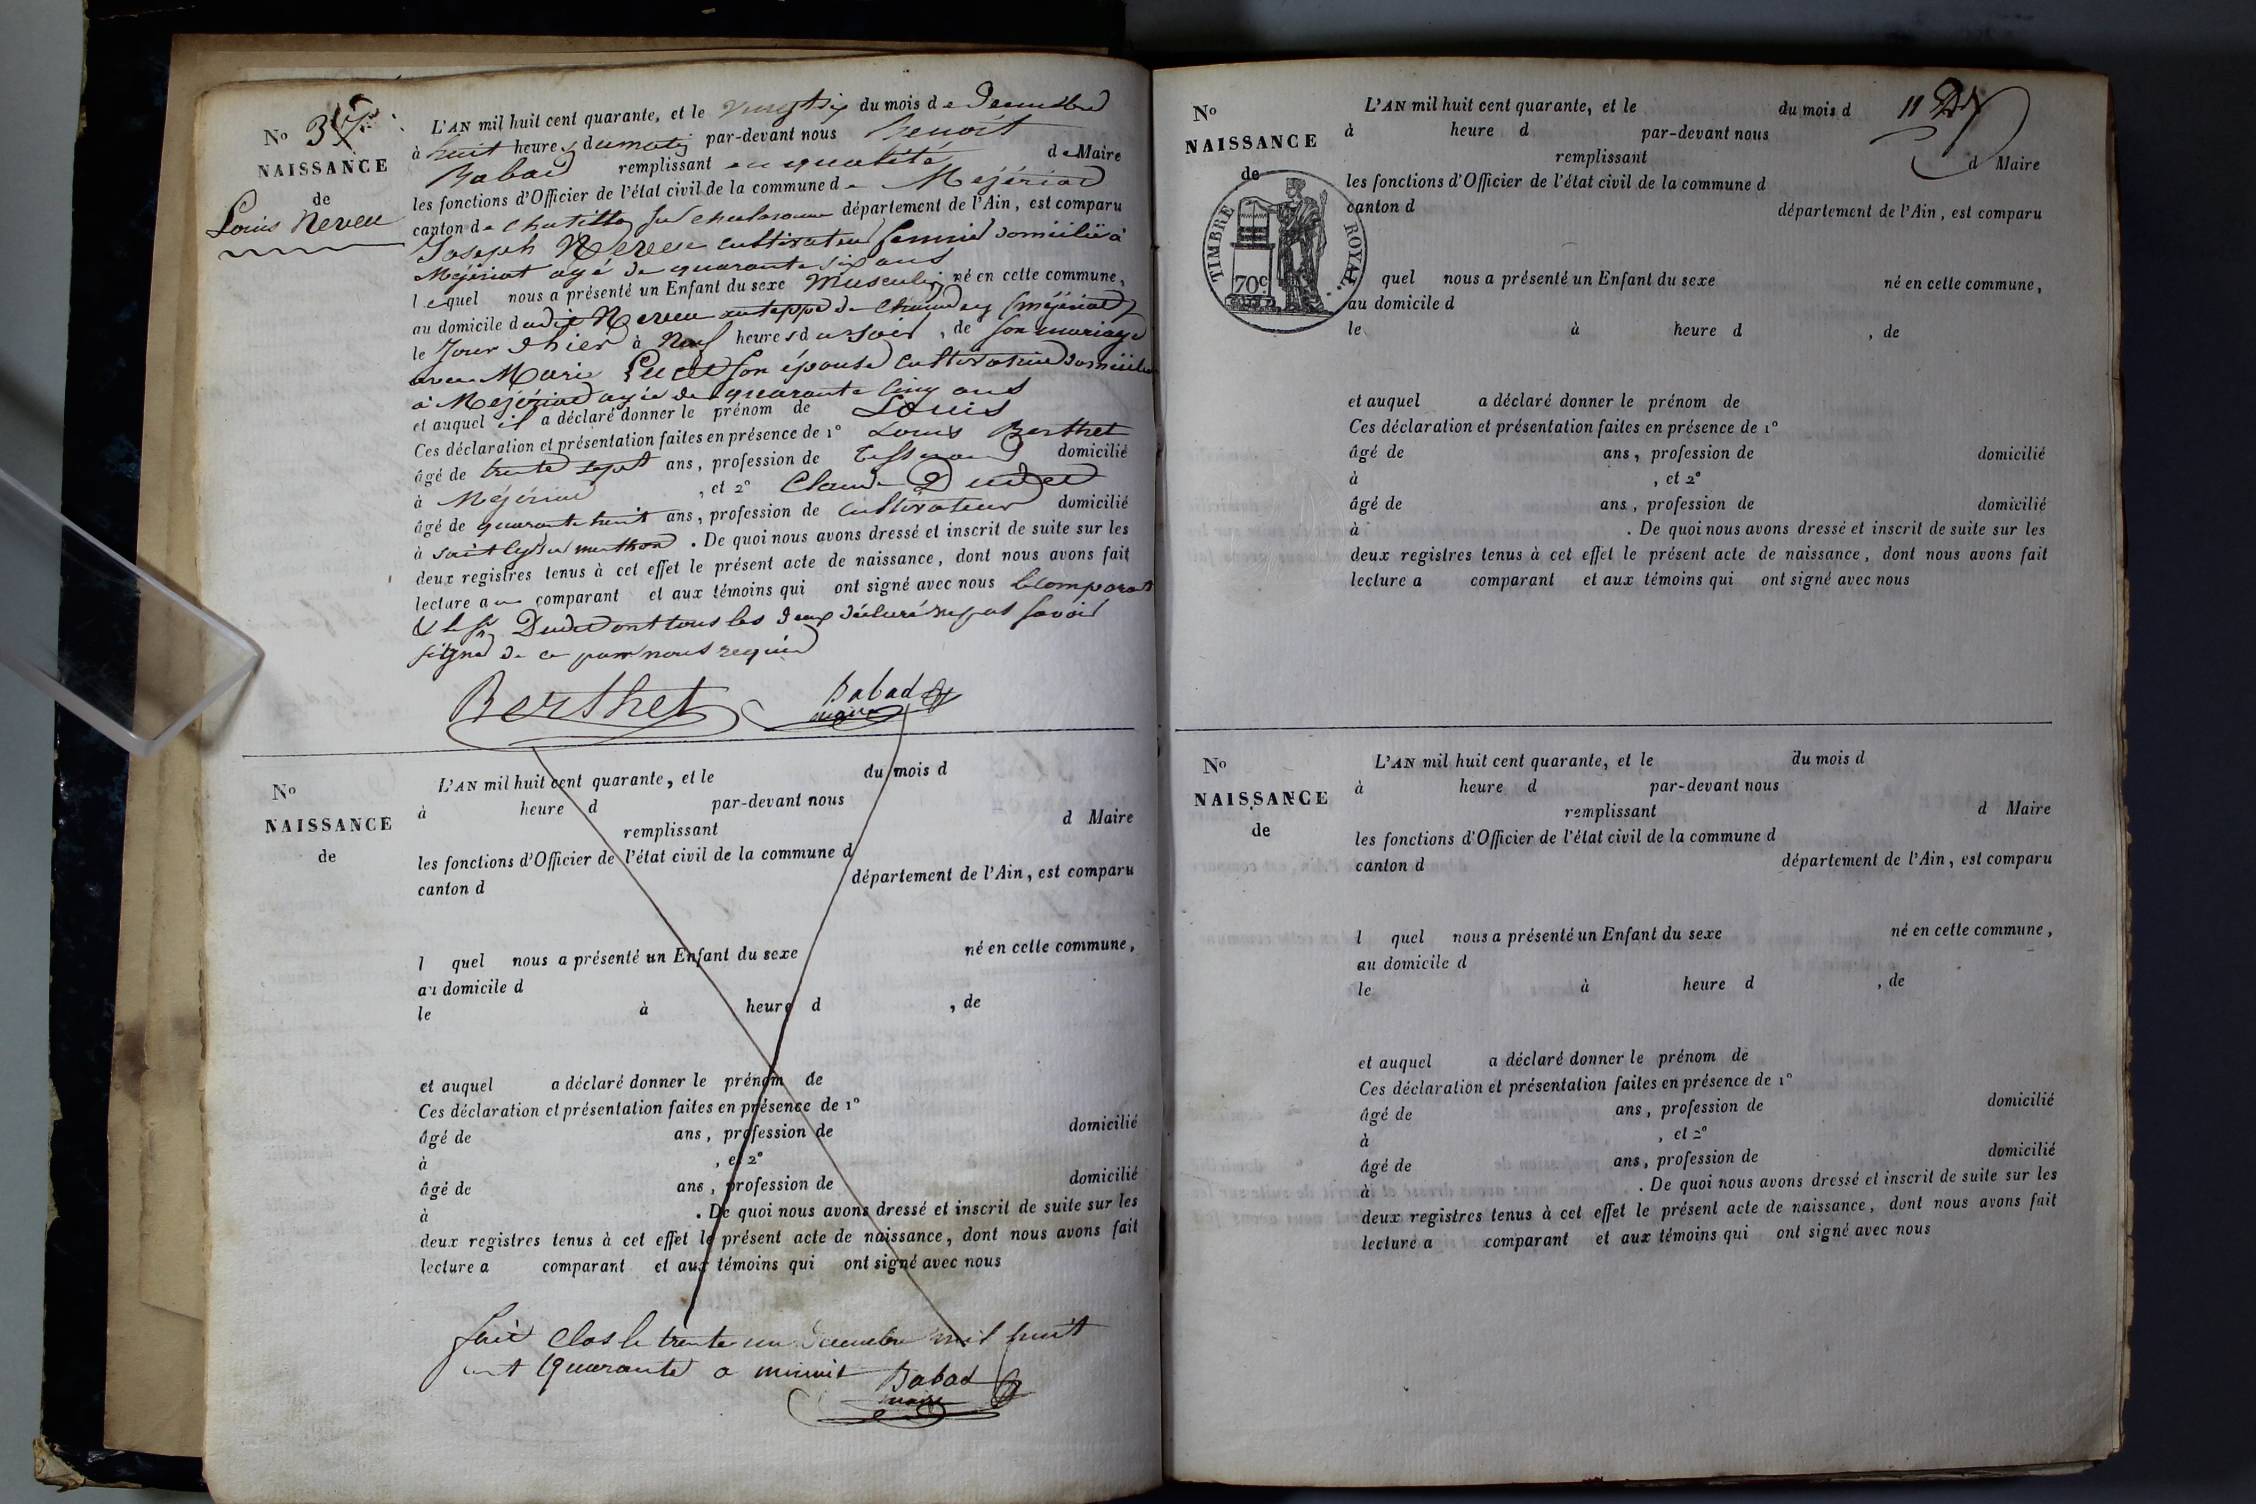 No 37
NAISSANCE
de
Louis Neveu
L'AN mil huit cent quarante, et le vingt six du mois de Decembre
à huit heures du matin par-devant nous Benoit
Babad remplissant en qualité de Maire
les fonctions d'Officier de l'état civil de la commune de Mézériat
canton de Chatillon sur Chalaronne département de l'Ain, est comparu
Joseph Neveu cultivateur fermier domicilié à
Mézériat agé de quarante six ans
lequel nous a présenté un Enfant du sexe Masculin né en cette commune,
au domicile dudit Neveu (mézériat)
le Jour d'hier à Neuf heures du soir, de son mariage
avec Marie son épouse cultivatrice domiciliée
à Mézériat agée de quarante cinq ans
et auquel il a déclaré donner le prénom de Louis
Ces déclaration et présentation faites en présence de 1º Louis Berthet
âgé de trente sept ans, profession de Tisserand domicilié
à Mézériat, et 2º Claude
âgé de quarante huit ans, profession de cultivateur domicilié
à . De quoi nous avons dressé et inscrit de suite sur les
deux registres tenus à cet effet le présent acte de naissance, dont nous avons fait
lecture au comparant et aux témoins qui ont signé avec nous le comparant
& le Sr ont tous les deux déclaré ne pas savoir
signer de ce par nous requis
Berthet Babad
maire
No
NAISSANCE
de
L'AN mil huit cent quarante, et le du mois d
à heure d par-devant nous
remplissant d Maire
les fonctions d'Officier de l'état civil de la commune d
canton d département de l'Ain, est comparu
l quel nous a présenté un Enfant du sexe né en cette commune,
au domicile d
le à heure d , de
et auquel a déclaré donner le prénom de
Ces déclaration et présentation faites en présence de 1º
âgé de ans, profession de domicilié
à , et 2º
âgé de ans, profession de domicilié
à . De quoi nous avons dressé et inscrit de suite sur les
deux registres tenus à cet effet le présent acte de naissance, dont nous avons fait
lecture a comparant et aux témoins qui ont signé avec nous
fait clos le trente un decembre mil huit
cent quarante a minuit Babad
maire
No
NAISSANCE
de
TIMBRE ROYAL
70c
L'AN mil huit cent quarante, et le du mois d
à heure d par-devant nous
remplissant d Maire
les fonctions d'Officier de l'état civil de la commune d
canton d département de l'Ain, est comparu
quel nous a présenté un Enfant du sexe né en cette commune,
au domicile d
le à heure d , de
et auquel a déclaré donner le prénom de
Ces déclaration et présentation faites en présence de 1º
âgé de ans, profession de domicilié
à , et 2º
âgé de ans, profession de domicilié
à . De quoi nous avons dressé et inscrit de suite sur les
deux registres tenus à cet effet le présent acte de naissance, dont nous avons fait
lecture a comparant et aux témoins qui ont signé avec nous
No
NAISSANCE
de
L'AN mil huit cent quarante, et le du mois d
à heure d par-devant nous
remplissant d Maire
les fonctions d'Officier de l'état civil de la commune d
canton d département de l'Ain, est comparu
l quel nous a présenté un Enfant du sexe né en cette commune,
au domicile d
le à heure d , de
et auquel a déclaré donner le prénom de
Ces déclaration et présentation faites en présence de 1º
âgé de ans, profession de domicilié
à , et 2º
âgé de ans, profession de domicilié
à . De quoi nous avons dressé et inscrit de suite sur les
deux registres tenus à cet effet le présent acte de naissance, dont nous avons fait
lecture a comparant et aux témoins qui ont signé avec nous